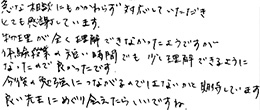 急な相談にもかかわらず対応していただき
とても感謝しています。
物理が全く理解できなかったようですが
体験授業の短い時間でも少し理解できるように
なったので良かったです。
今後の勉強につながるのではないかと期待しています
良い先生にめぐり会えたらいいですね。